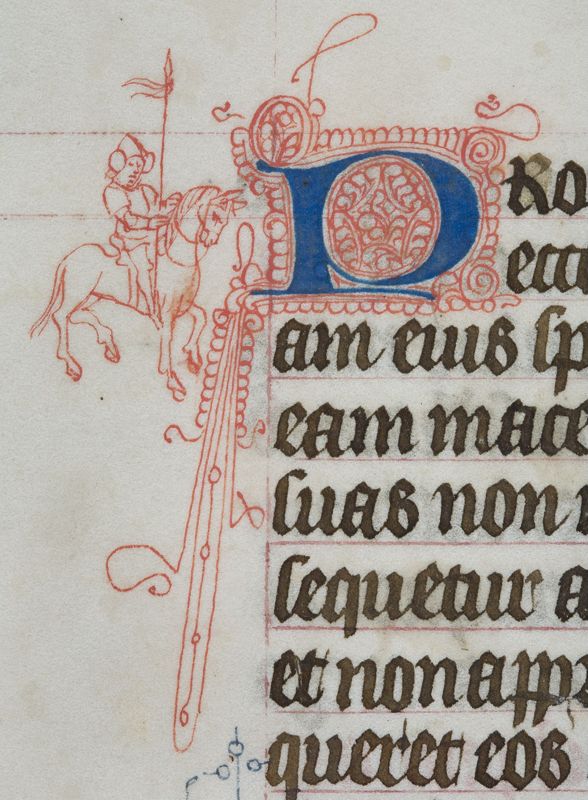 PRO
ecce
am eius sp
eam mace
suas non
sequetur a
et non appr
queret eos